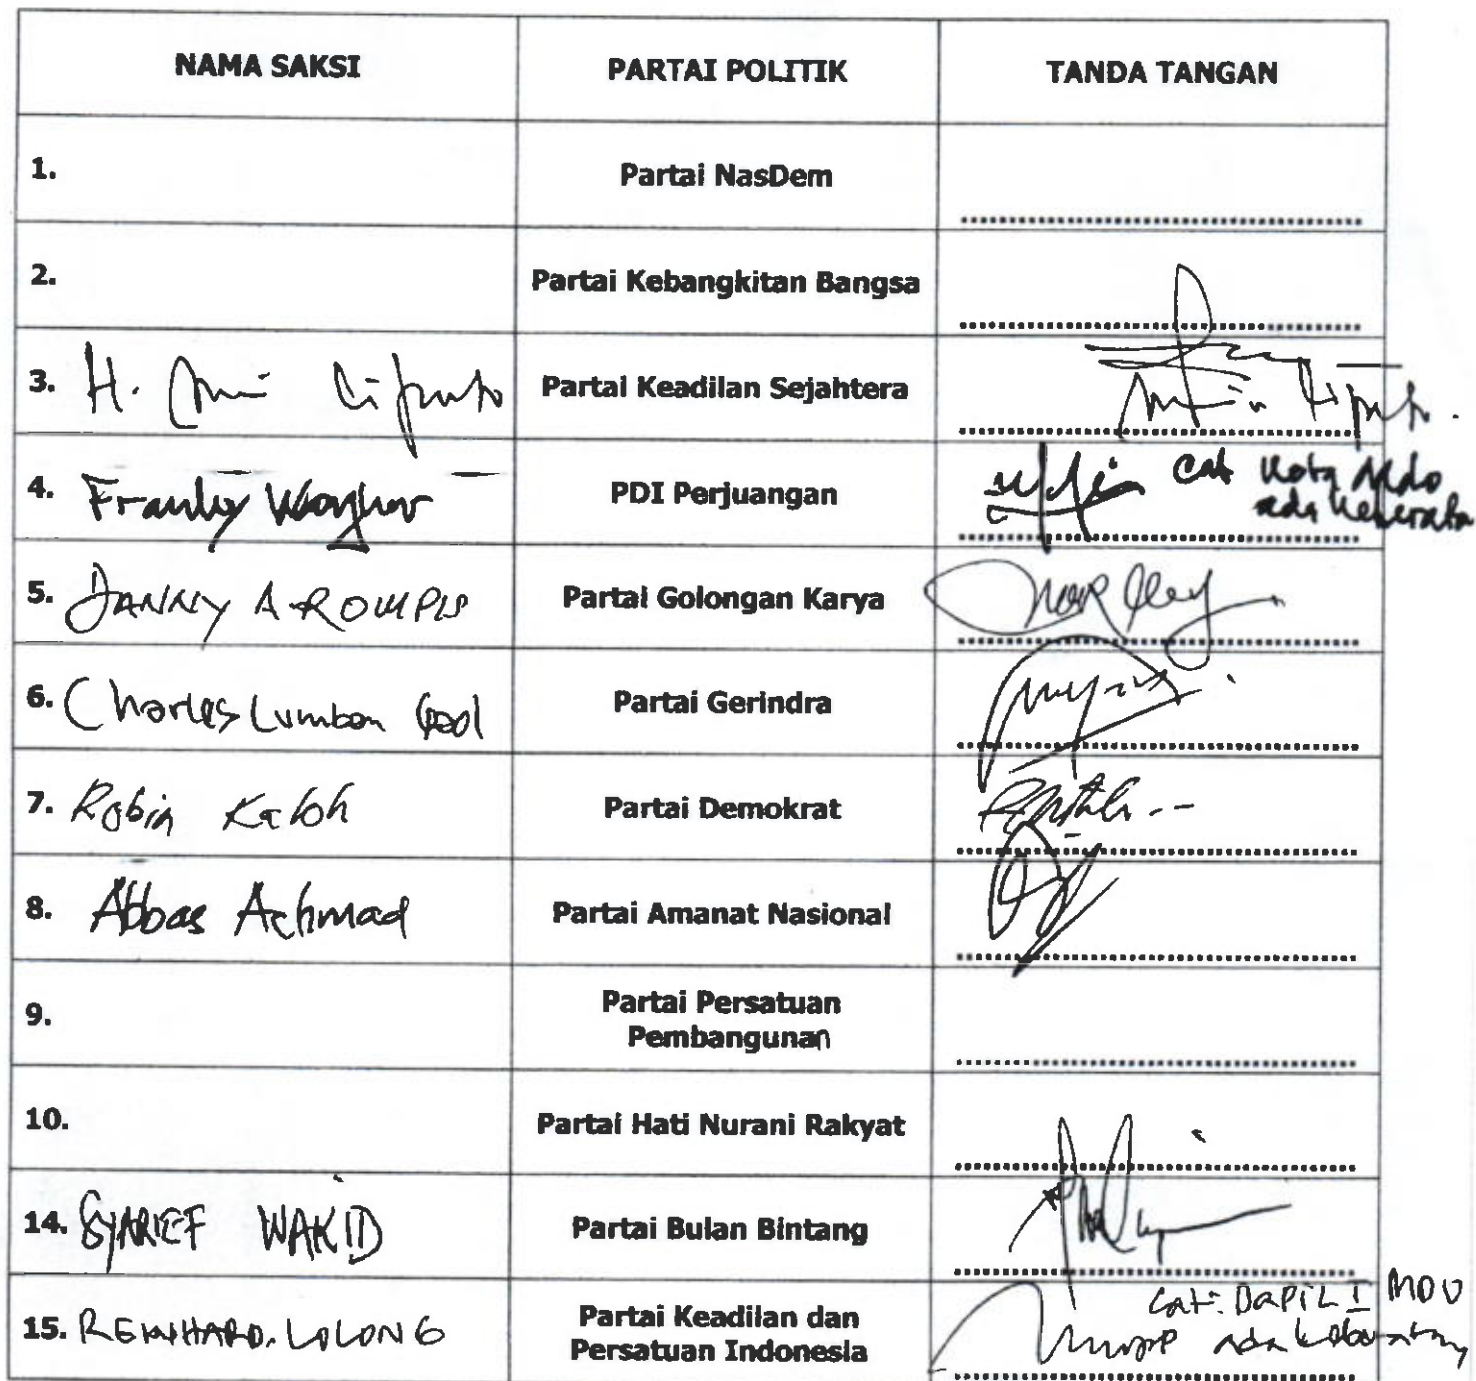 NAMA SAKSI PARTAI POLITIK TANDA TANGAN
1. Partai NasDem
2. Partai Kebangkitan Bangsa
3. H. Partai Keadilan Sejahtera
4. Franky PDI Perjuangan Cat Kota Mdo
ada
5. DANNY A ROMPIS Partai Golongan Karya
6. Charles Lumban Gaol Partai Gerindra
7. Robin Kaloh Partai Demokrat
8. Abbas Achmad Partai Amanat Nasional
9. Partai Persatuan
Pembangunan
10. Partai Hati Nurani Rakyat
14. SYARIEF WAKID Partai Bulan Bintang
15. REINHARD. LOLONG Partai Keadilan dan
Persatuan Indonesia
Cat: DAPIL I MDO
ada keberatan